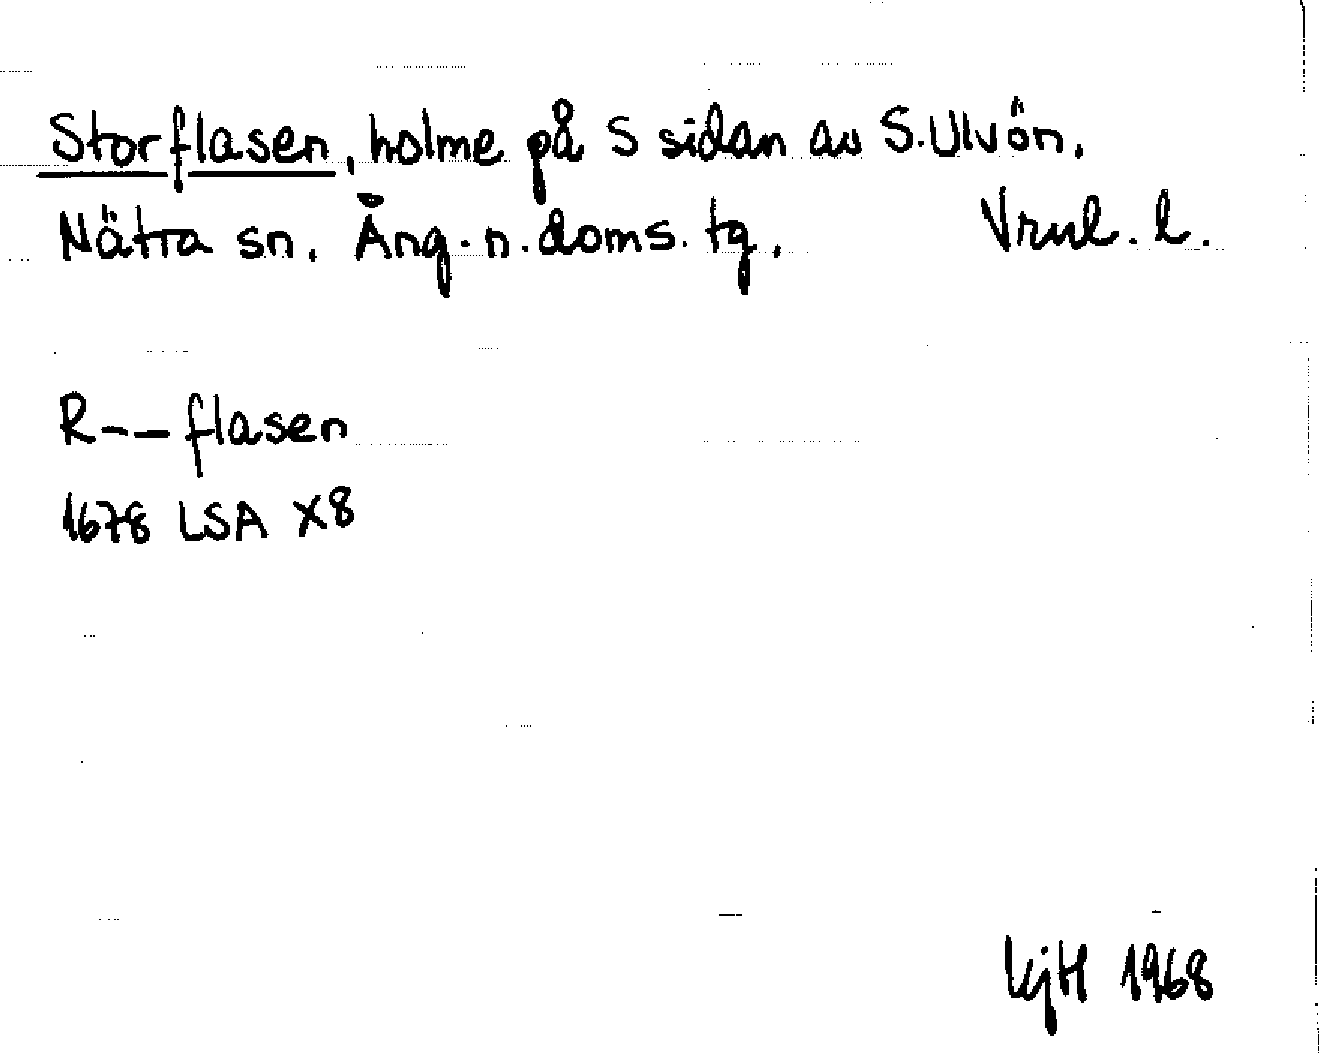 Storflasen, holme på S sidan av S. Ulvön.
Nätra sn. Ång. n. doms. tg. Vrnl. l.
R--flasen
1678 LSA X8
KjH 1968